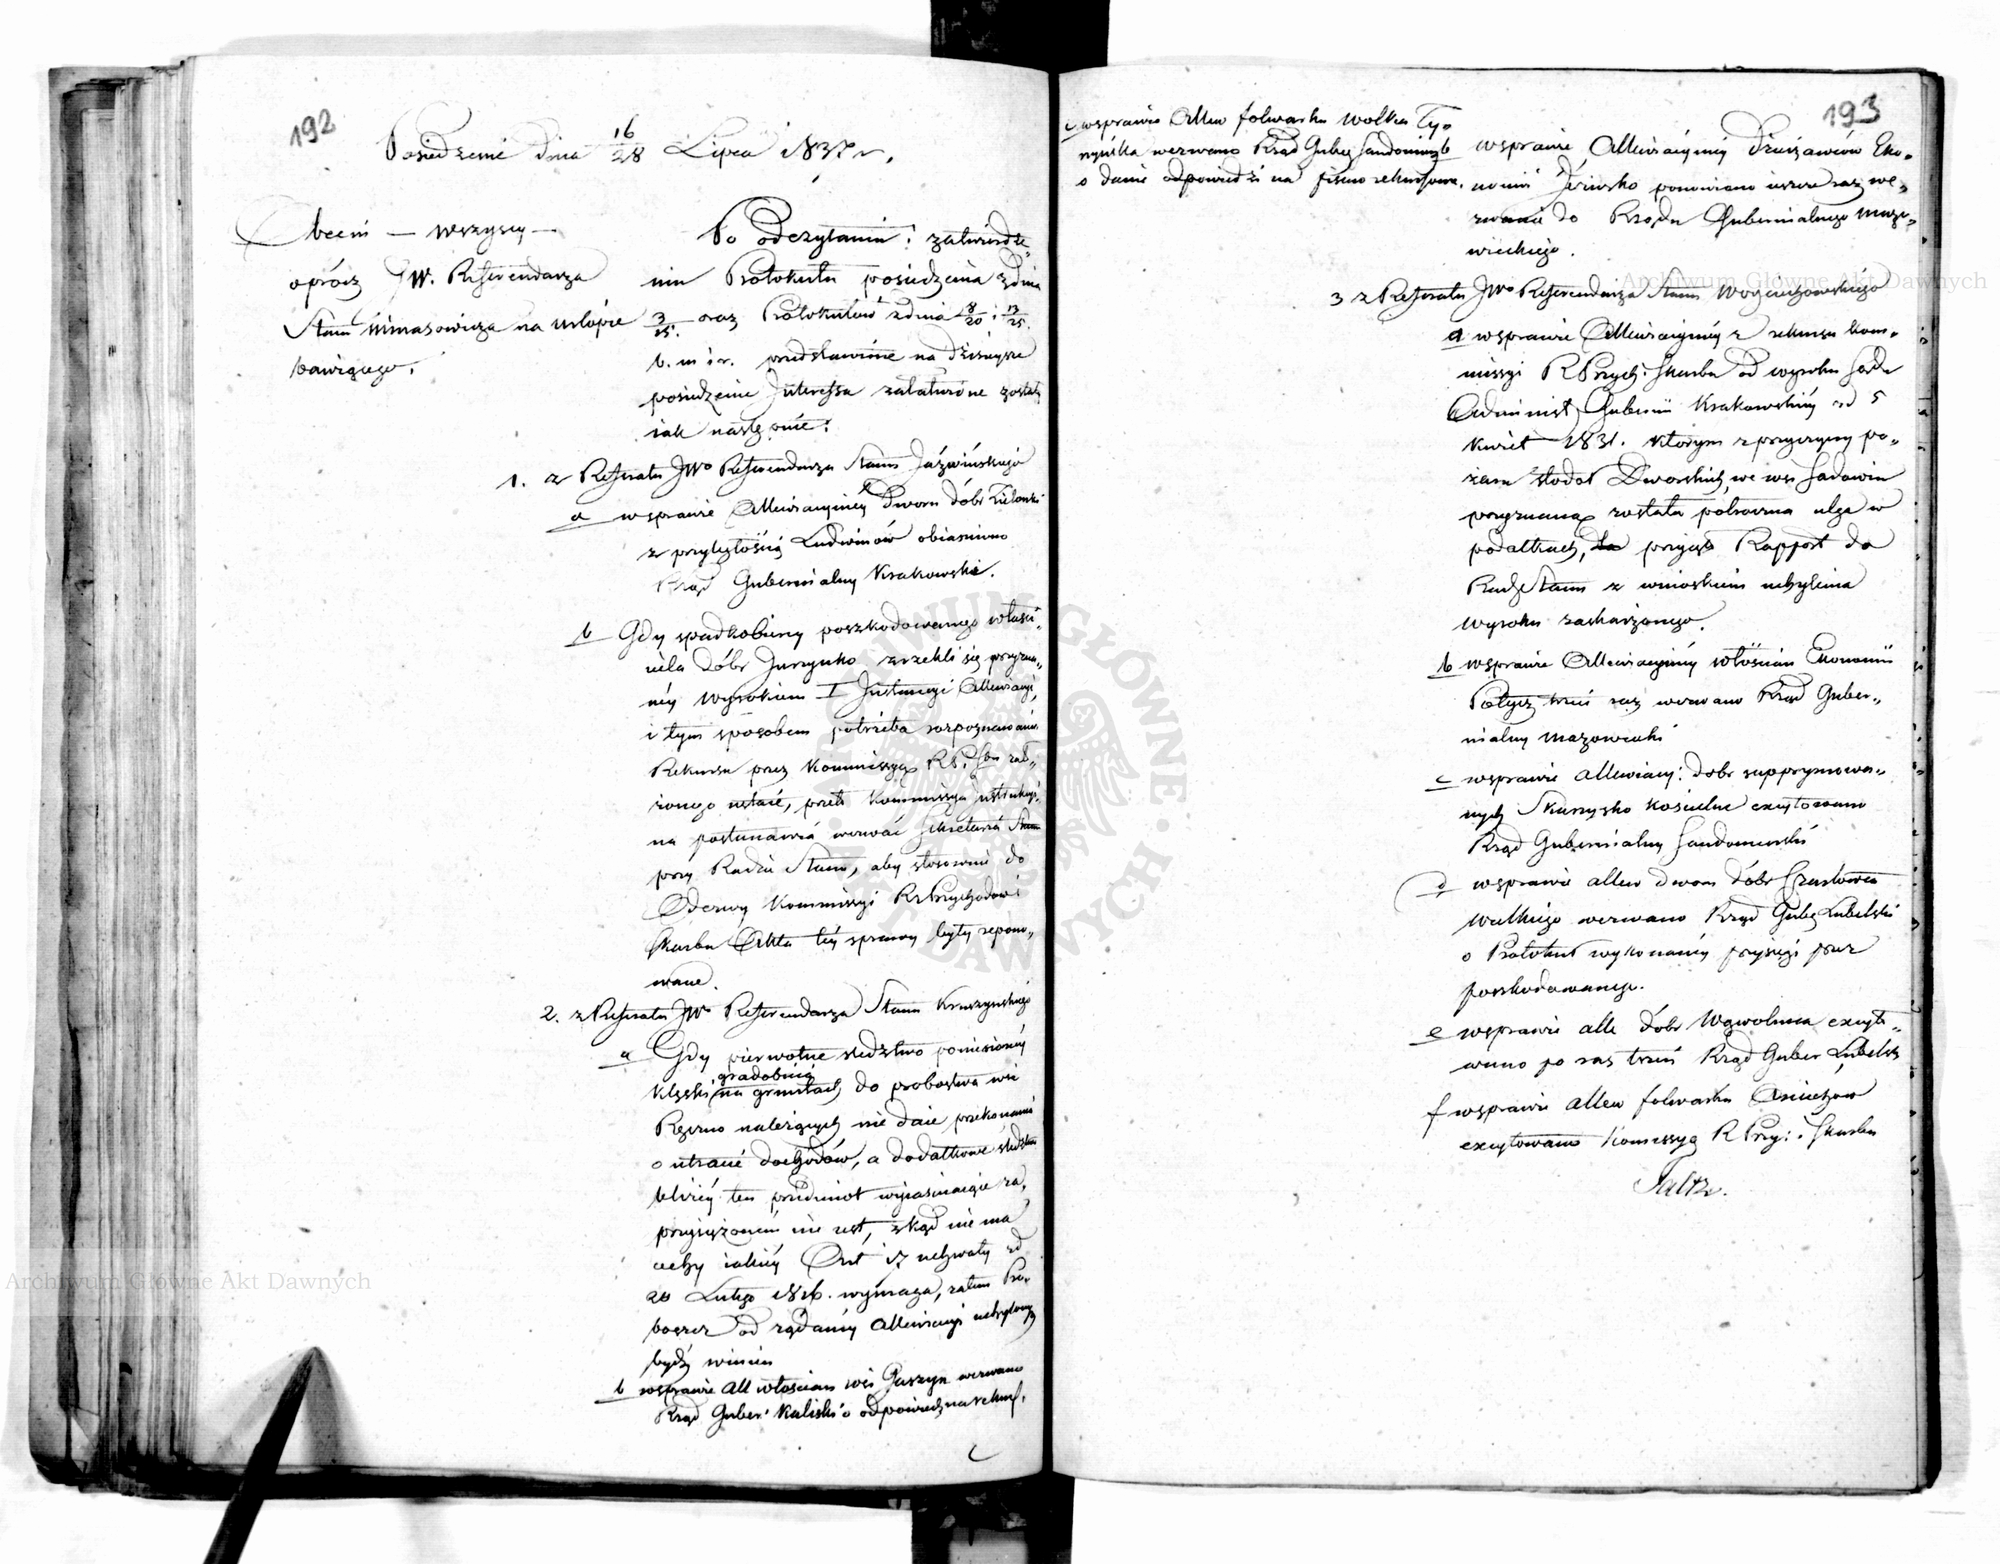 192
Posiedzenie dnia 16/28 Lipca 1837 r.
Obecni — wszyscy —
oprócz JW. Referendarza
Stanu na urlopie
bawiącego.
Po odczytaniu i zatwierdze„
niu Protokułu posiedzenia z dnia
3/15. oraz Protokułów z dnia 8/20 i 13/25.
b. m i r. przedstawione na dzisieysze
posiedzenie Interessa załatwione zostały
iak następuie:
1. z Referatu JWo Referendarza Stanu Jaźwińskiego
a w sprawie Allewiacyiney Dworu dóbr
z przyległością Ludwinów obiaśniono
Rząd Gubernialny Krakowski.
b Gdy spadkobiercy poszkodowanego właści„
ciela dóbr zrzekli się przyzna„
néy wyrokiem I Instancyi Allewiacyi,
i tym sposobem potrzeba rozpoznawania
Rekursu przez Kommissyą RP. i Sbu zało„
żonego ustaie, przeto Kommissya Instrukcyi„
na postanawia wezwać Sekretarza Stanu
przy Radzie Stanu, aby stosownie do
Odezwy Kommissyi R Przychodów i
Skarbu Akta téy sprawy były repono„
wane.
2. z Referatu JWo Referendarza Stanu Kruszyńskiego
a Gdy pierwotne śledztwo poniesionéy
klęski gradobicia na gruntach do probostwa wsi
należących nie daie przekonania
o utracie dochodów, a dodatkowe śledztwo
bliżéy ten przedmiot wyiaśniaiące za„
przysiężonem nie iest, zkąd nie ma
cechy iakiéy Art 17 uchwały zd
20 Lutego 1816. wymaga, zatem Pro„
boszcz od żądanéy Allewiacyi uchylony
bydź winien
b w sprawie All włościan wsi Guszyn wezwano
Rząd Guber: Kaliski o odpowiedź na rekurs.
c
Archiwum Główne Akt Dawnych
193
c w sprawie Allew folwarku Wolka Ty„
wezwano Rząd Guber Sandomierski
o danie odpowiedzi na pismo rekursowe.
b w sprawie Allewiacyiney Dzierżawców Eko„
nomii ponowiono ieszcze raz we„
zwanie do Rządu Gubernialnego Mazo„
wieckiego.
3 z Referatu JWo Referendarza Stanu Woyciechowskiego
a w sprawie Allewiacyinéy z rekursu Kom„
missyi R Przych: i Skarbu od wyroku Sądu
Administ Gubernii Krakowskiéy zd 5
Kwiet 1831. którym z przyczyny po„
żaru stodoł Dworskich we wsi Sadowiu
przyznaną została ulga w
podatkach, przyięto Rapport do
Rady Stanu z wnioskiem uchylenia
wyroku zaskarżonego.
b w sprawie Allewiacyinéy włościan Ekonomii
Potycz trzeci raz wezwano Rząd Guber„
nialny Mazowiecki
c w sprawie allewiacy: dóbr supprymowa„
nych Skarzysko Kościelne excytowano
Rząd Gubernialny Sandomierski
d w sprawie allew dworu dóbr
Wielkiego wezwano Rząd Gube Lubelski
o Protokuł wykonanéy przysięgi przez
poszkodowanego.
e w sprawie alle dóbr Wąwolnica excyto„
wano po raz trzeci Rząd Guber Lubelski
f w sprawie allew folwarku
excytowano Komissyą R Przy: i Skarbu
Archiwum Główne Akt Dawnych
ARCHIWUM GŁÓWNE AKT DAWNYCH